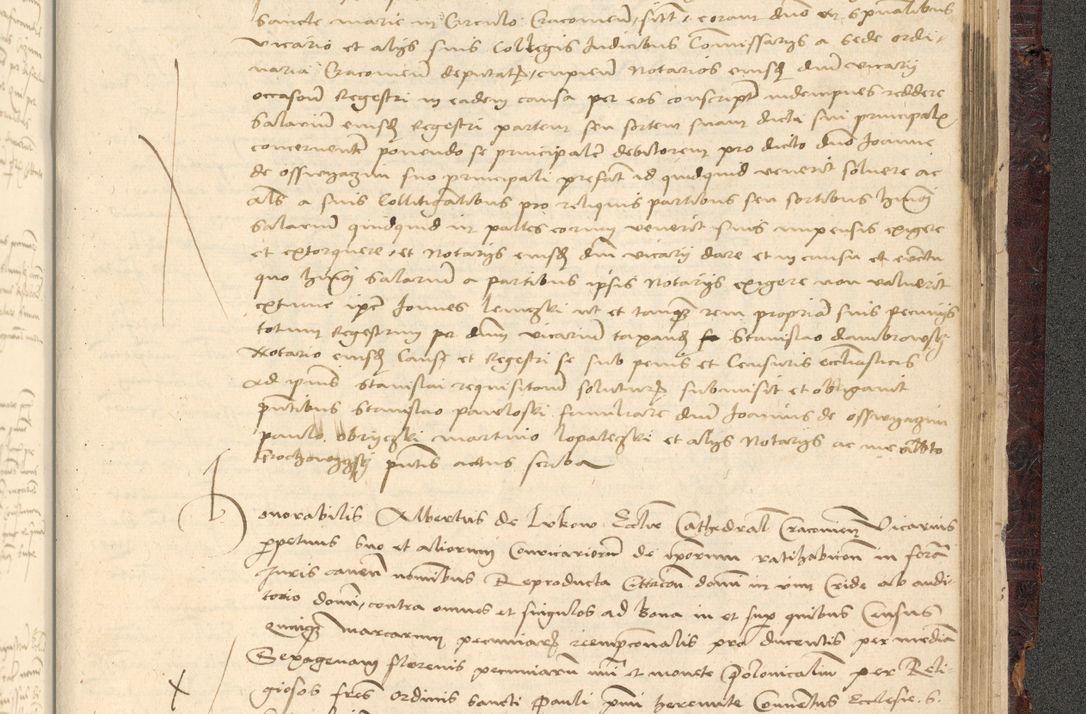 Sancte marie in Circulo Cracovien sitt coram dno et spualibus
vicario et alijs suis Collegis Judicibus Commissarijs a sede ordi-
naria Cracovien deputat cupien Notarios eiusd dni vicarij
occasione Regestri in eadem causa per eos conscript indempnes reddere
Salarium eiusd Regestri partem seu sortem suam dicta sui principalem
concernente ponendo se principale debitorem pro dicto dno Joanne
de osswyaczim suo principali prefat id quidquid venerit solvere ac
als a suis Collitigatibus pro reliquis partibus seu sortibus
Salarium quidquid in partes eorum venerit suis impensis exigere
et extorquere et Notarijs eiusd dni vicarij dare et in causa et eventu
quo Salarium a partibus ipsis Notarijs exigere non valuerit
extunc ipse Joannes ut et tamq rem propriam suis pecunijs
totum Regestrum per dnm vicarium taxand Stanislao dambrowski
Notario eiusd Cause et Regestri se sub penis et Censuris ecclasticis
ad ipsius Stanislai requisitionem soluturum submisit et obligavit
pntibus Stanislao pawloski familiare dni Joannis de osswyaczim
paulo martino et alijs Notarijs ac me
pntis actus scriba
Honorabilis Albertus de Lukow Ecclie Cathedral Cracovien Vicarius
perpetuus suo et aliorum Convicariorum de ipsorum ratihabicion in forma
Juris caven nominibus Reproducta Citacion domi in vim Cride ab audi-
torio domi contra omnes et singulos ad bona in et super quibus Census
quinq marcarum pecuniar reempcionalis pro ducentis per mediam
Sexagenam florenis pecuniarum et monete Polonicalium per Reli-
giosos fres ordinis Sancti Pauli primi heremite Conventus Ecclesie S.